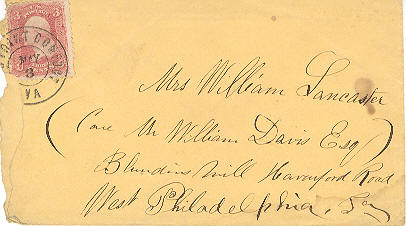 3 3
POINT COMFORT
MAY
3
VA
Mrs William Lancaster
(Care Mr William Davis Esq)
Blundins Mill Haverford Road
West Philadelphia,